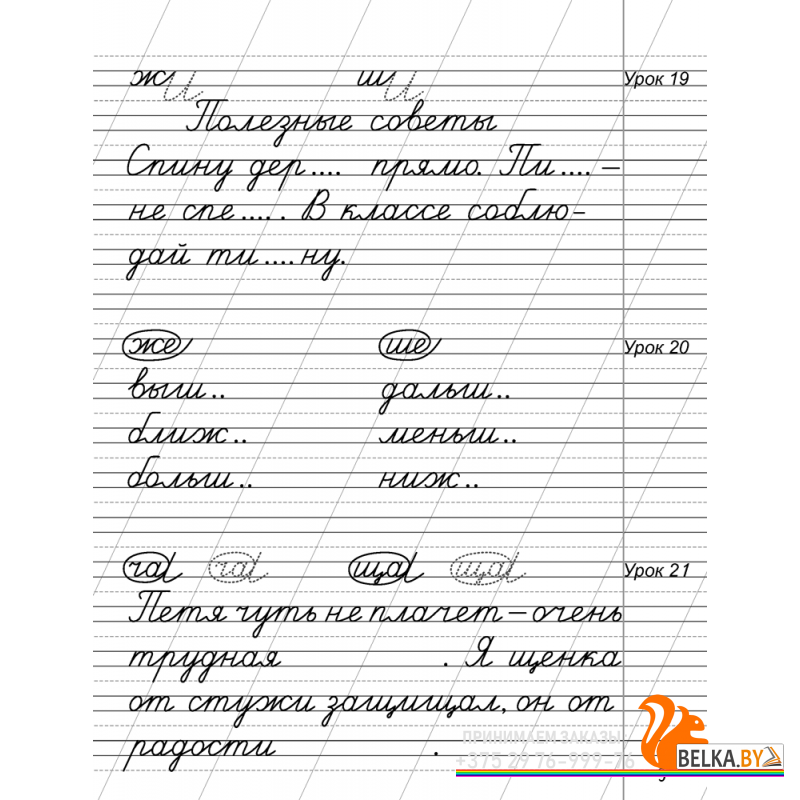 жи ши Урок 19
Полезные советы
Спину дер.... прямо. Пи.... –
не спе..... В классе соблю-
дай ти....ну.
же ше Урок 20
выш.. дальш..
ближ.. меньш..
больш.. ниж..
ча ча ща ща Урок 21
Петя чуть не плачет – очень
трудная . Я щенка
от стужи защищал, он от
радости .
ПРИНИМАЕМ ЗАКАЗЫ
+375 29 76-999-76
BELKA.BY